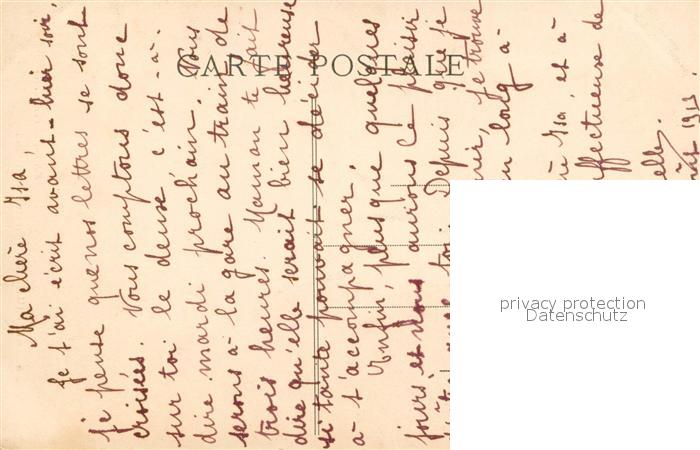 CARTE POSTALE
Ma chère Isa,
Je t'ai écrit avant-hier soir,
je pense que nos lettres se sont
croisées. Nous comptons donc
sur toi le deux c'est-à-
dire mardi prochain. Nous
serons à la gare au train de
trois heures. Maman te fait
dire qu'elle serait bien heureuse
si tante pouvait se décider
à t'accompagner.
Enfin, plus que quelques
jours et nous aurions ce plaisir
toi. Depuis que je
je trouve
long à
Isa, et à
affectueuse de
elle.
1913
privacy protection
Datenschutz